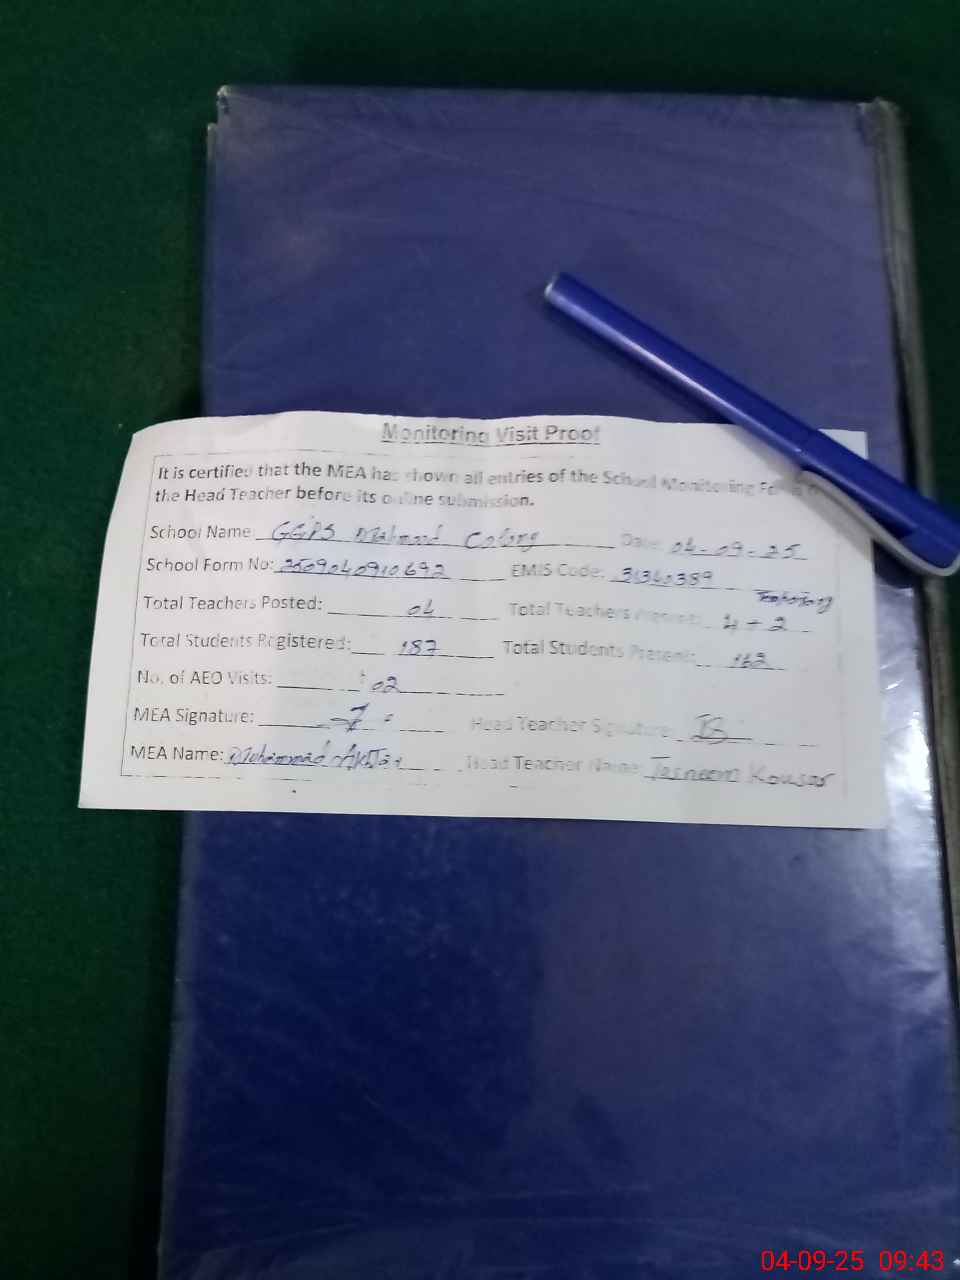 Monitoring Visit Proof
It is certified that the MEA has shown all entries of the School Monitoring Form
the Head Teacher before its online submission.
School Name: GGPS Mahmood Colony Date: 04-09-25
School Form No: EMIS Code:
Total Teachers Posted: 04 Total Teachers Present: 4+2
Total Students Registered: 187 Total Students Present: 162
No. of AEO Visits: 02
MEA Signature: Head Teacher Signature:
MEA Name: Muhammad Akhtar Head Teacher Name: Tasneem Kousar
04-09-25 09:43